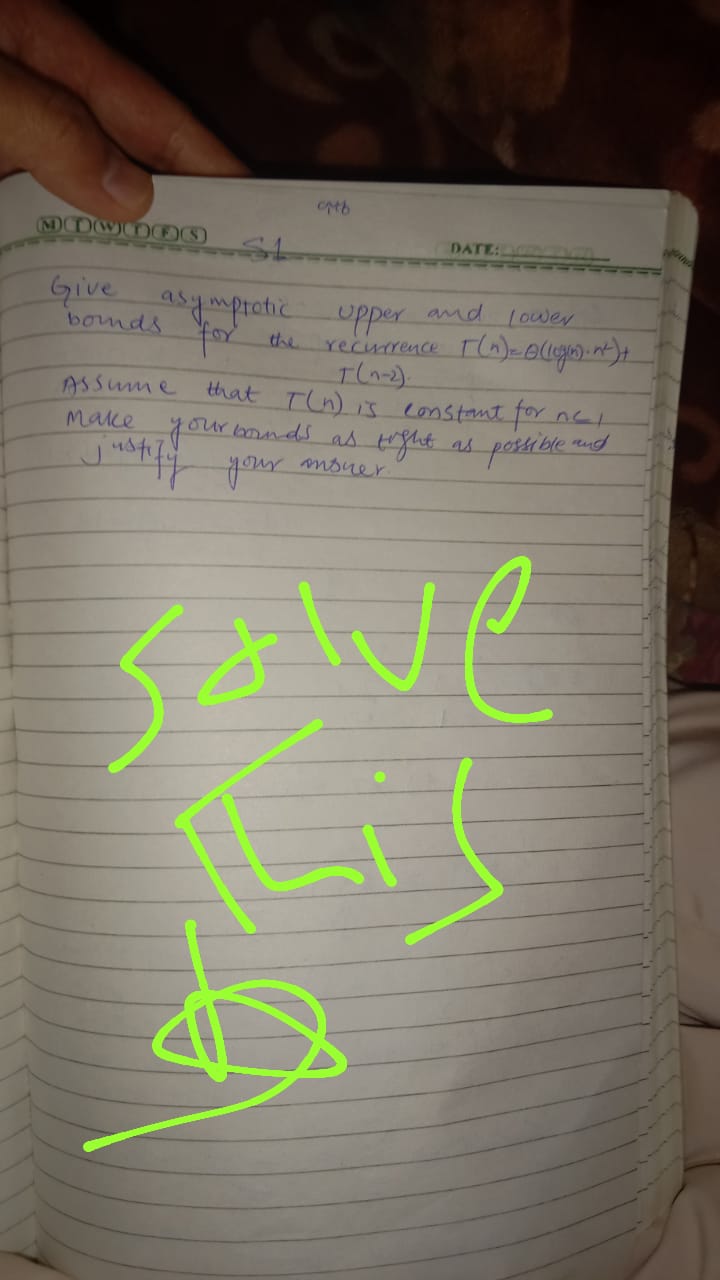 M T W T F S
S1
DATE:
Give asymptotic upper and lower
bounds for the recurrence T(n)=θ(log(n)·n²)+
T(n-2).
Assume that T(n) is constant for n<1
Make your bounds as tight as possible and
justify your answer.
Solve
This